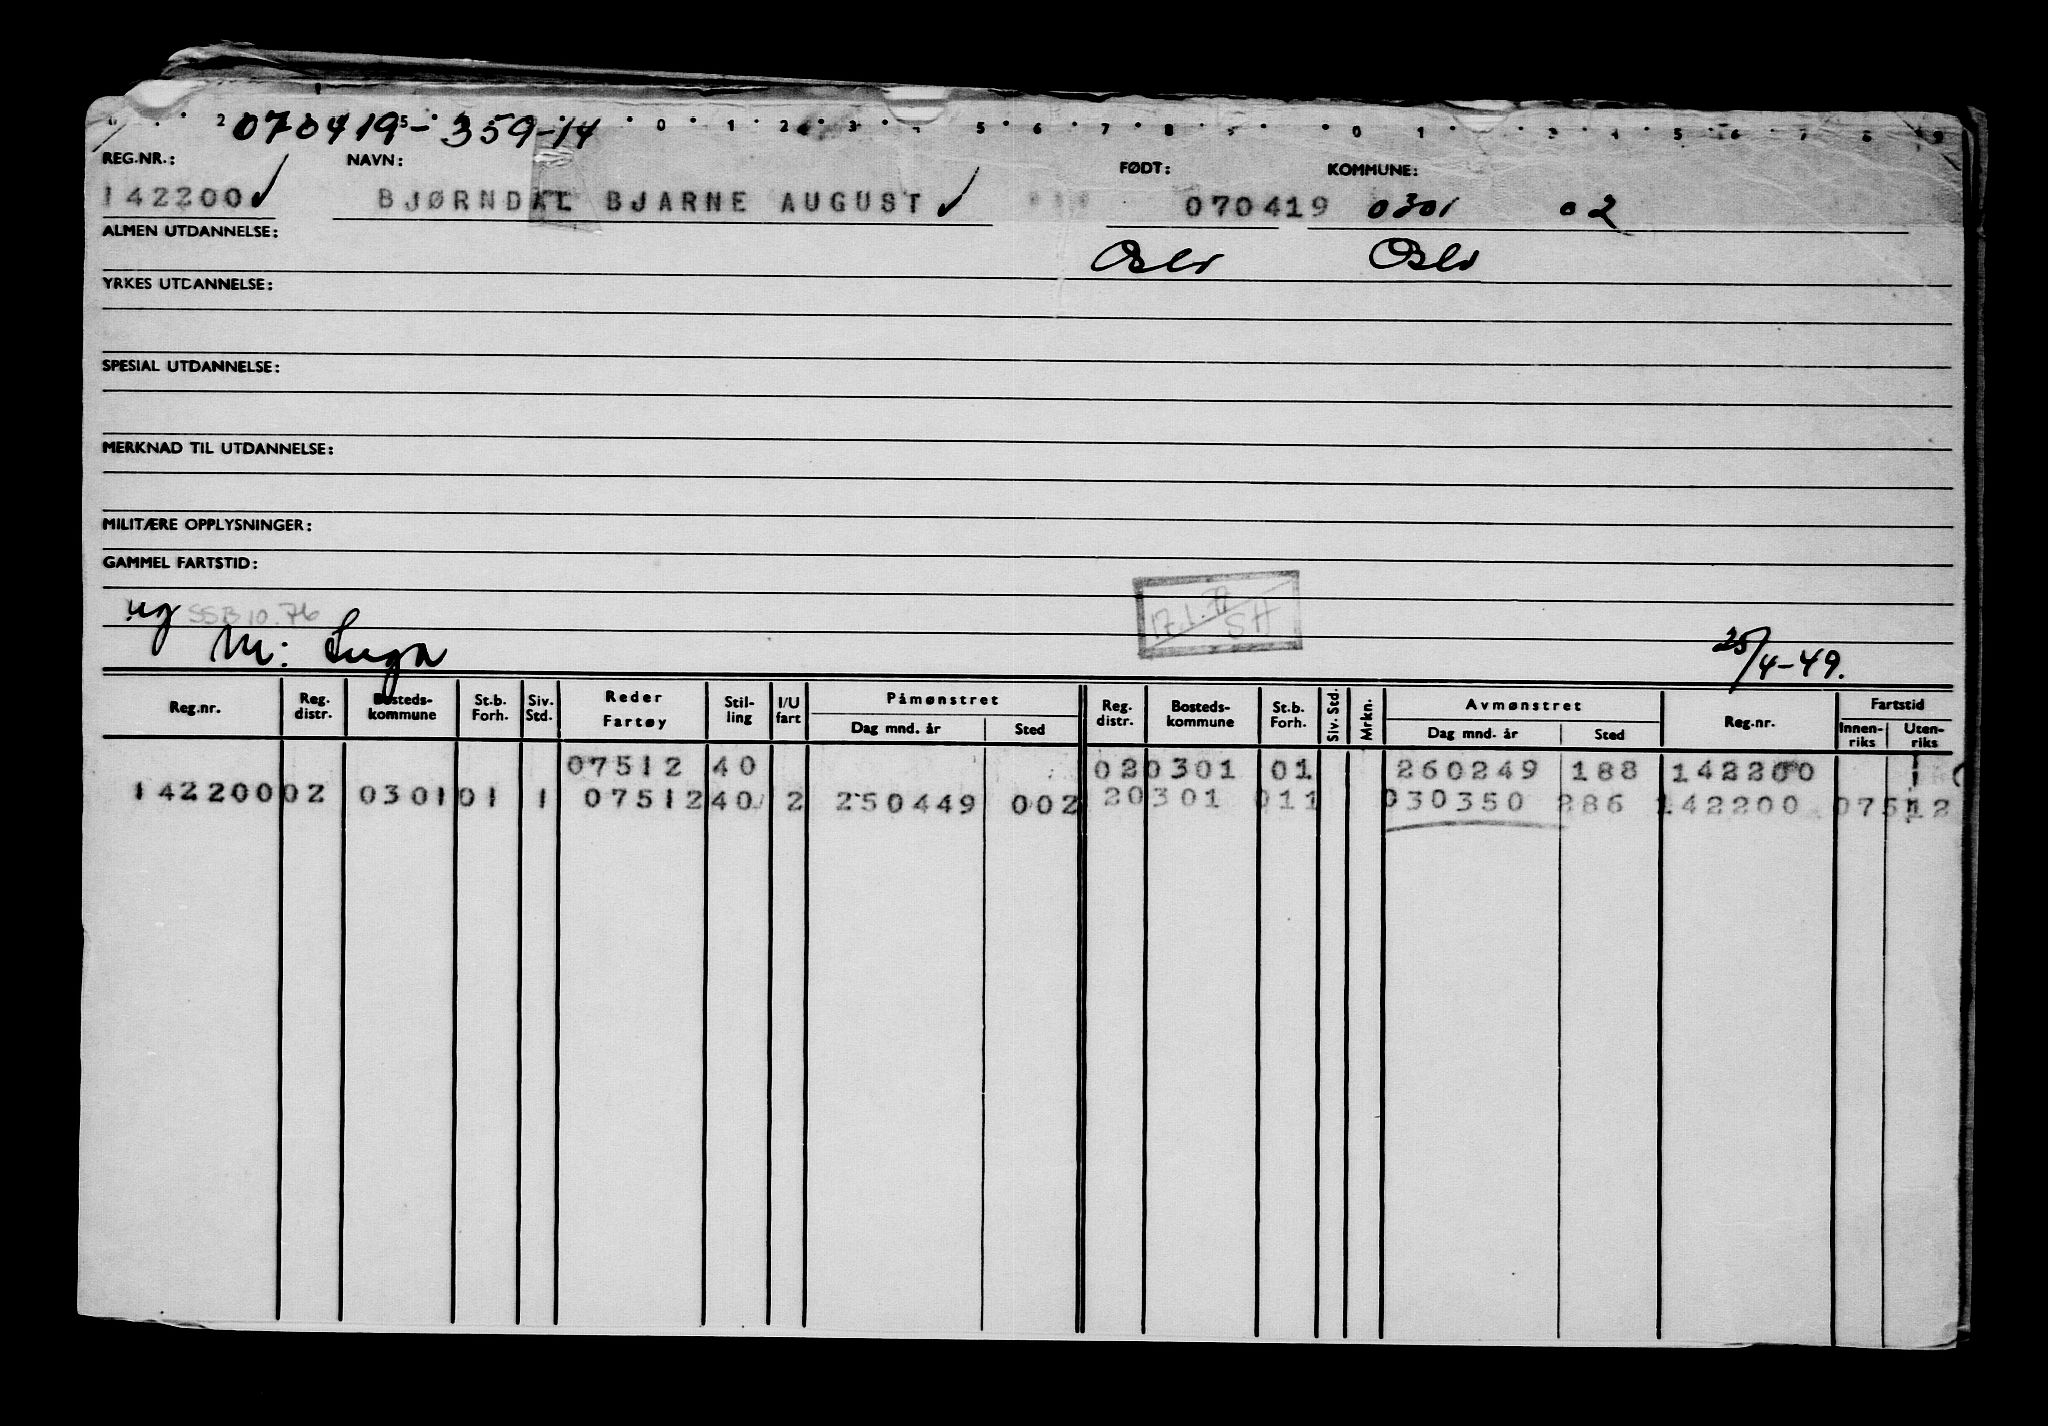 070419-359-14
REG.NR.: NAVN: FØDT: KOMMUNE:
142200 ✓ BJØRNDAL BJARNE AUGUST ✓ 070419 0301 02
ALMEN UTDANNELSE: Oslo Oslo
YRKES UTDANNELSE:
SPESIAL UTDANNELSE:
MERKNAD TIL UTDANNELSE:
MILITÆRE OPPLYSNINGER:
GAMMEL FARTSTID:
ug SSB 10.76
M: 25/4-49.
Reg.nr. Reg. distr. Bosteds-kommune St.b. Forh. Siv. Std. Reder Fartøy Stil-ling I/U fart Påmønstret Dag mnd. år Sted Reg. distr. Bosteds-kommune St.b. Forh. Siv. Std. Mrkn. Avmønstret Dag mnd. år Sted Reg.nr. Fartstid Innen-riks Uten-riks
07512 40 02 0301 01 260249 188 142200
142200 02 0301 01 1 07512 40 2 250449 002 20301 011 030350 286 142200 07512